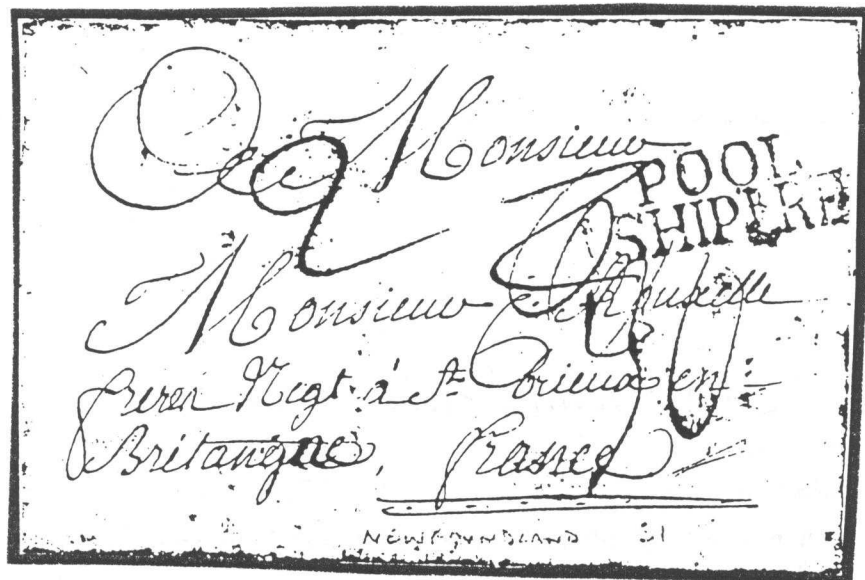 Monsieur
POOL
SHIP LRE
Monsieur
freres Negt. à St. brieux en
Britangne, france
NEWFOUNDLAND 31